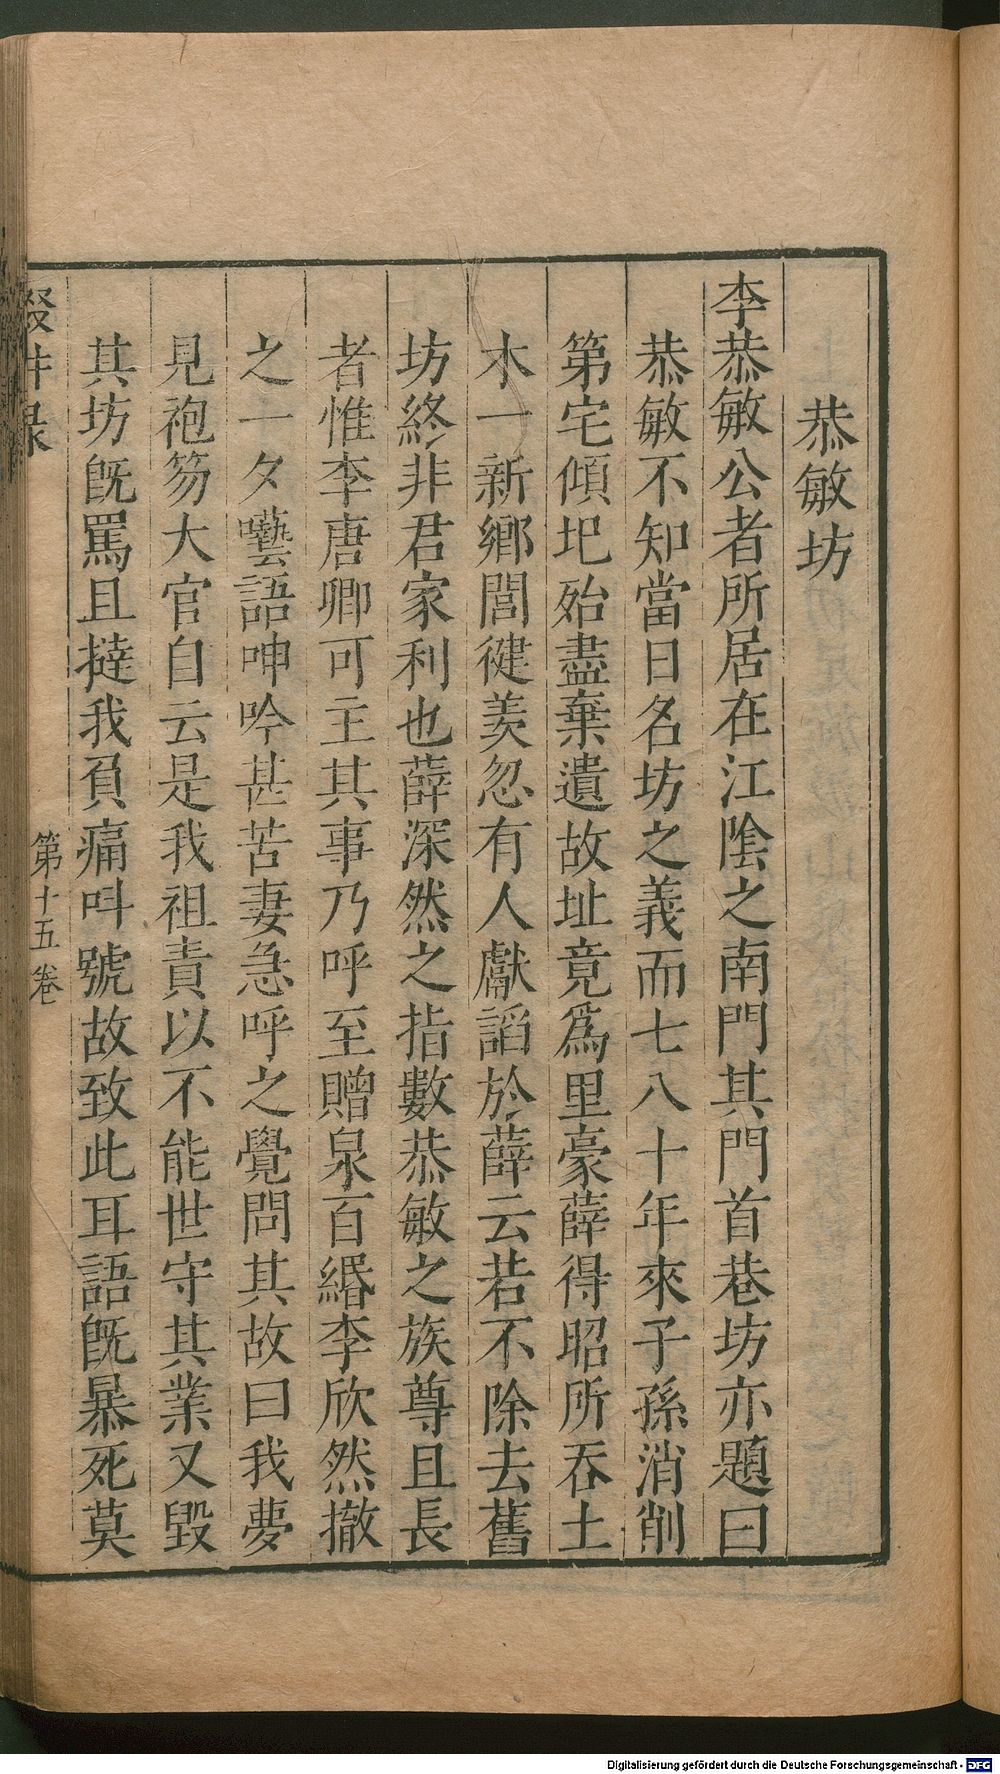 恭敏坊
李恭敏公者所居在江陰之南門其門首巷坊亦題曰
恭敏不知當日名坊之義而七八十年來子孫消削
第宅傾圯殆盡棄遺故址竟爲里豪薛得昭所吞土
木一新鄉閭健羨忽有人獻謟於薛云若不除去舊
坊終非君家利也薛深然之指數恭敏之族尊且長
者惟李唐卿可主其事乃呼至贈泉百緡李欣然撤
之一夕囈語呻吟甚苦妻急呼之覺問其故曰我夢
見袍笏大官自云是我祖責以不能世守其業又毀
其坊旣罵且撻我負痛呌號故致此耳語旣暴死莫
第十五卷
Digitalisierung gefördert durch die Deutsche Forschungsgemeinschaft - DFG